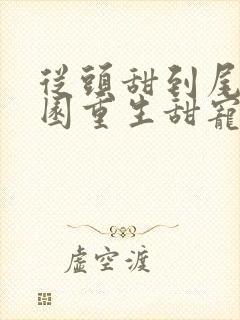 從頭甜到尾
園重生甜寵
虛空渡